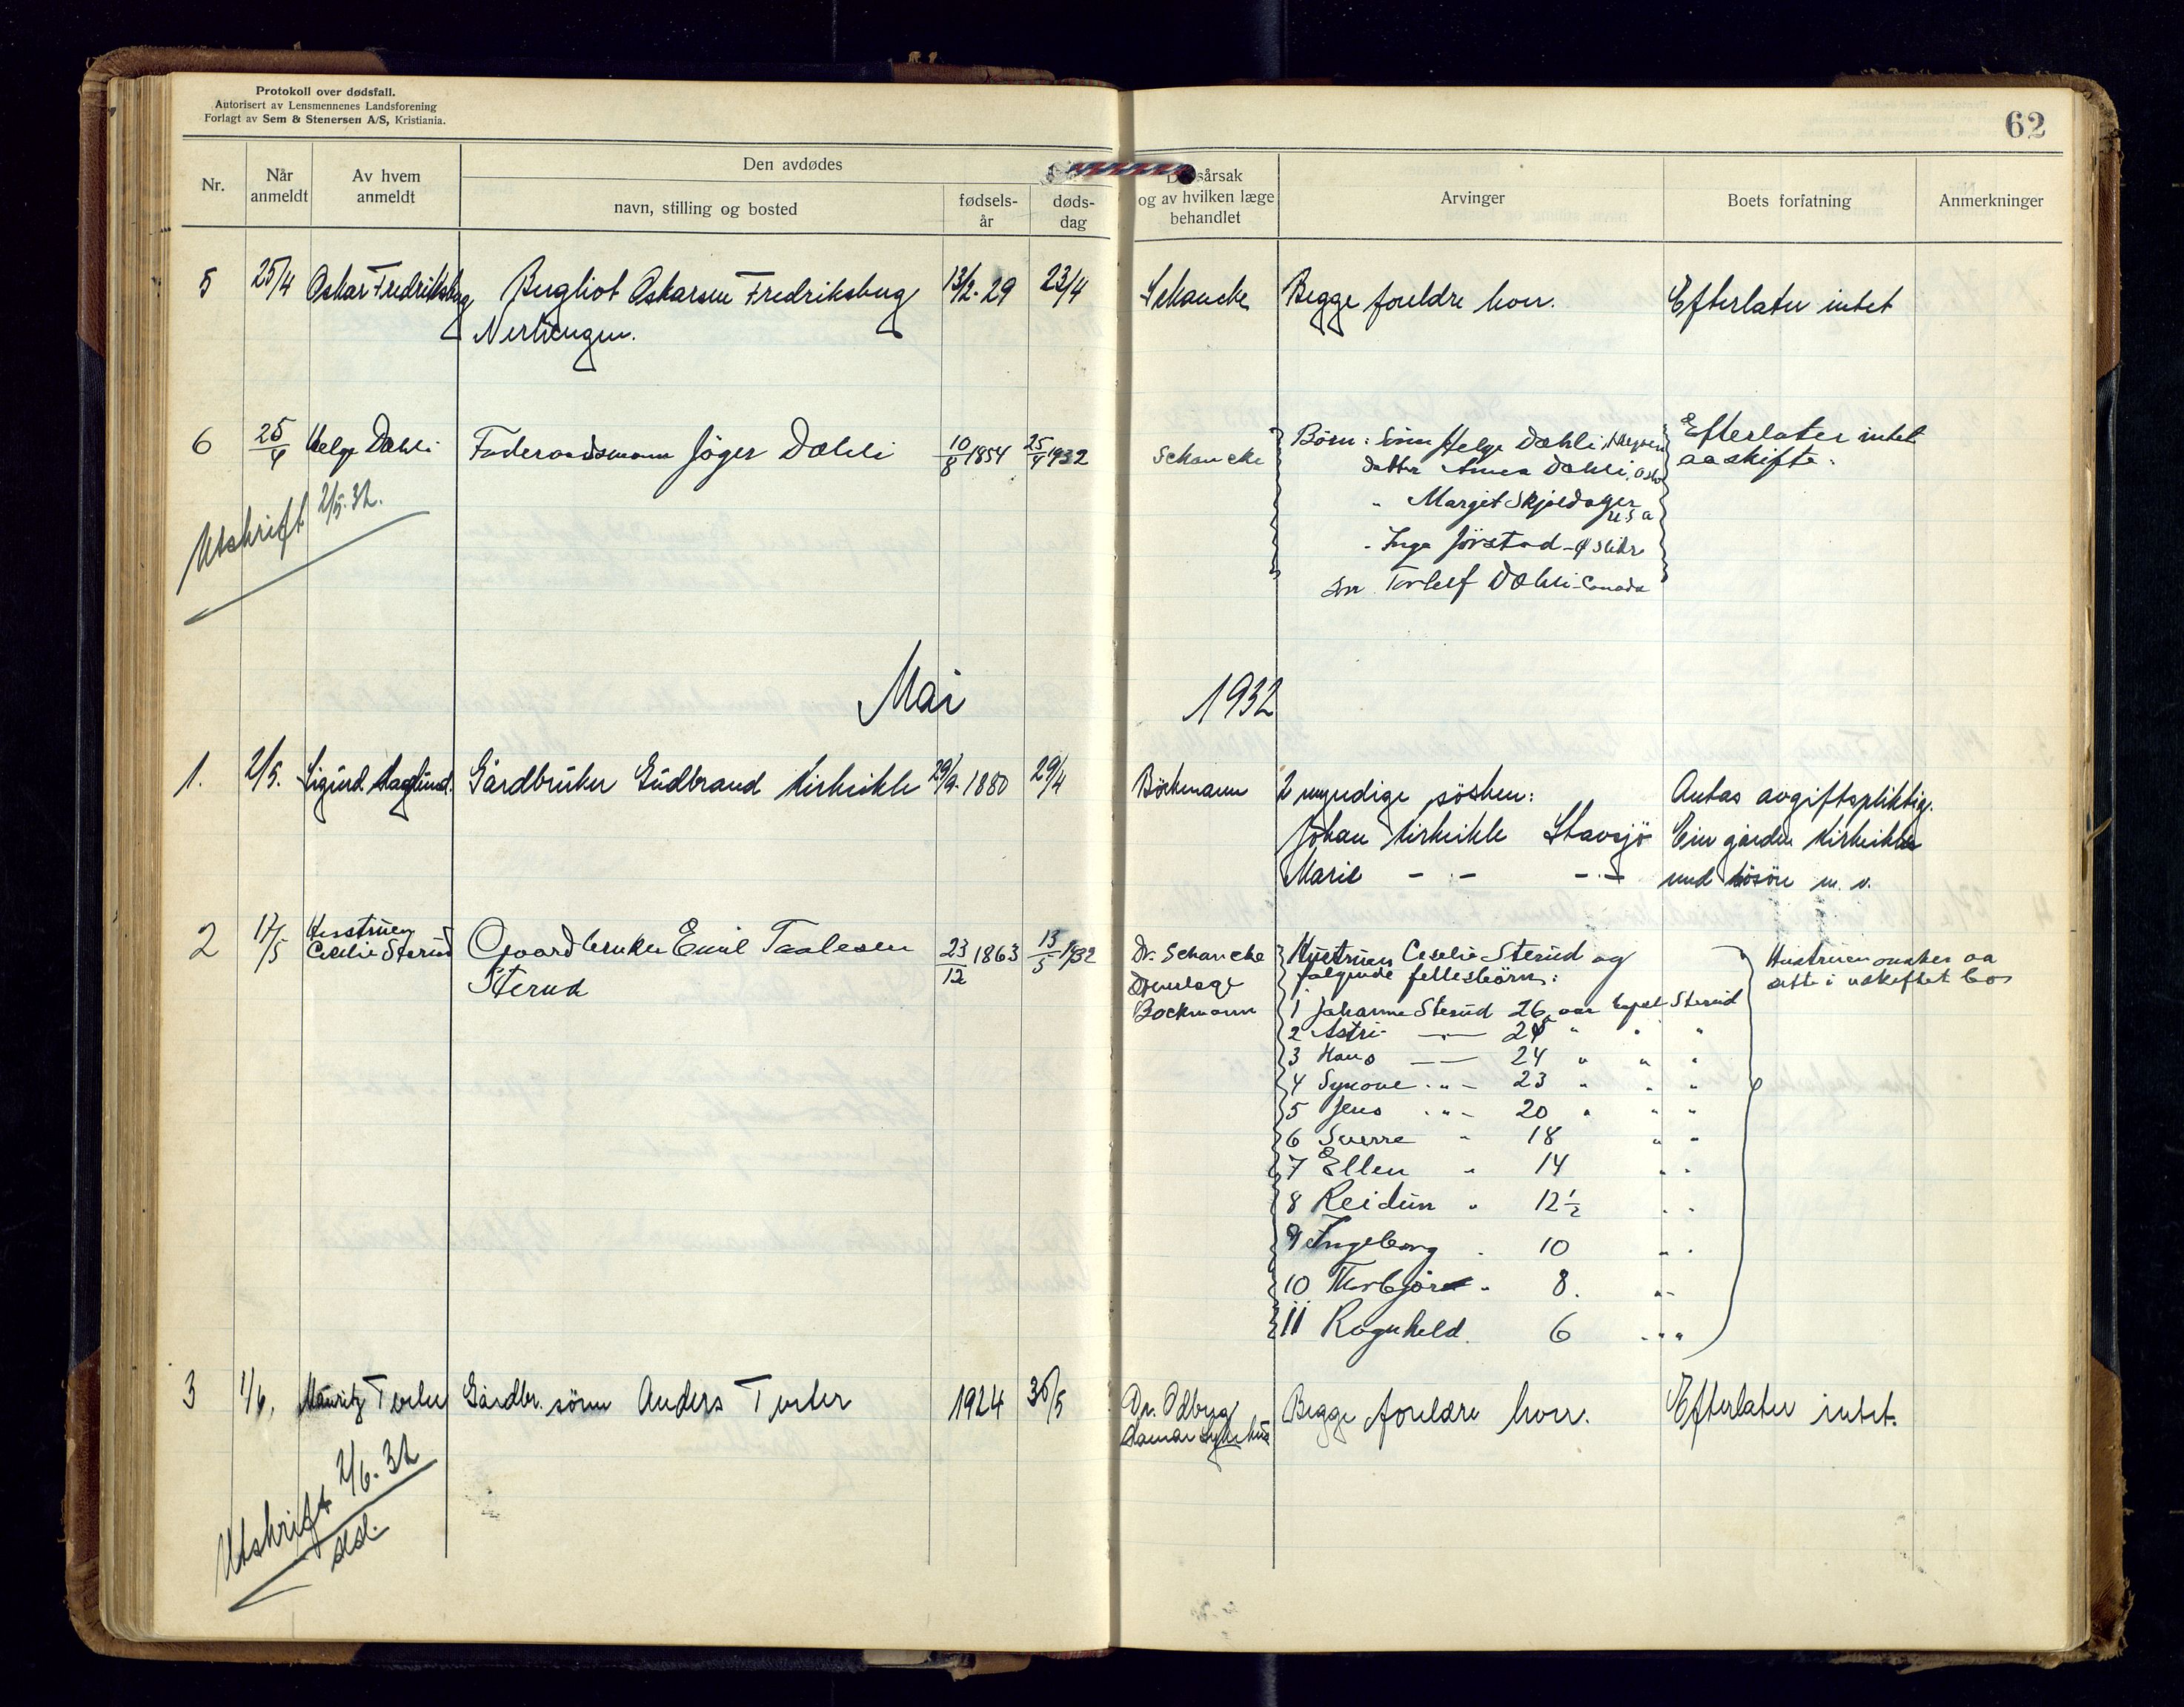 Protokoll over dødsfall.
Autorisert av Lensmennenes Landsforening
Forlagt av Sem & Stenersen A/S, Kristiania.
62
Nr.
Når anmeldt
Av hvem anmeldt
Den avdødes
navn, stilling og bosted
fødsels-
år
døds-
dag
og av hvilken læge
behandlet
Arvinger
Boets forfatning
Anmerkninger
5 25/4 Oskar Fredriksberg Bergliot Oskarsen Fredriksberg 13/2-29 23/4 Schancke Begge foreldre hver. Efterlater intet
Nerhengen.
6 25/4 Helge Dæhli Føderaadsmann Jöger Dæhli 10/8 1854 25/4 1932 Schancke Børn: Sönn Helge Dæhli, Efterlater intet
datter Anna Dæhli, Oslo aa skifte.
" Margit Skjoldager
U.S.a
- Inga Jörstad - Ø Slidre
Sön Torleif Dæhli - Canada
Utskrift 2/5.32.
Mai 1932
1. 2/5. Sigurd Haglund. Gårdbruker Gudbrand Kirkeikle 29/9-1880 29/4 Böckmann 2 myndige sösken: Antas avgiftspliktig.
Johan Kirkeikle Stavsjö Eier gården Kirkeikle
Marie - " - - " - med lösöre m. v.
2 17/5 Hustruen Cecelie Sterud Gaardbruker Emil Paalesen 23/12 1863 13/5 1932 Dr. Schancke Hustruen Ceselie Sterud og Hustruen ønsker aa
Sterud følgende fellesbörn: sitte i uskiftet bo
Bockmann 1 Johanne Sterud 26 aar bopel Sterud
2 Astri — 25 " " "
3 Hans — 24 " " "
4 Synove - " - 23 " " "
5 Jens - " - 20 " " "
6 Sverre " 18 " "
7 Ellen " 14 " "
8 Reidun " 12 1/2 " "
9 Ingeborg " 10 " "
10 Thorbjörn " 8. " "
11 Ragnhild. 6 " "
3 1/6. Mauritz Tveter Gårdbr. sönn Anders Tveter 1924 30/5 Dr. Odberg Begge foreldre hver. Efterlater intet.
Hamar Sykehus
Utskrift 2/6.32